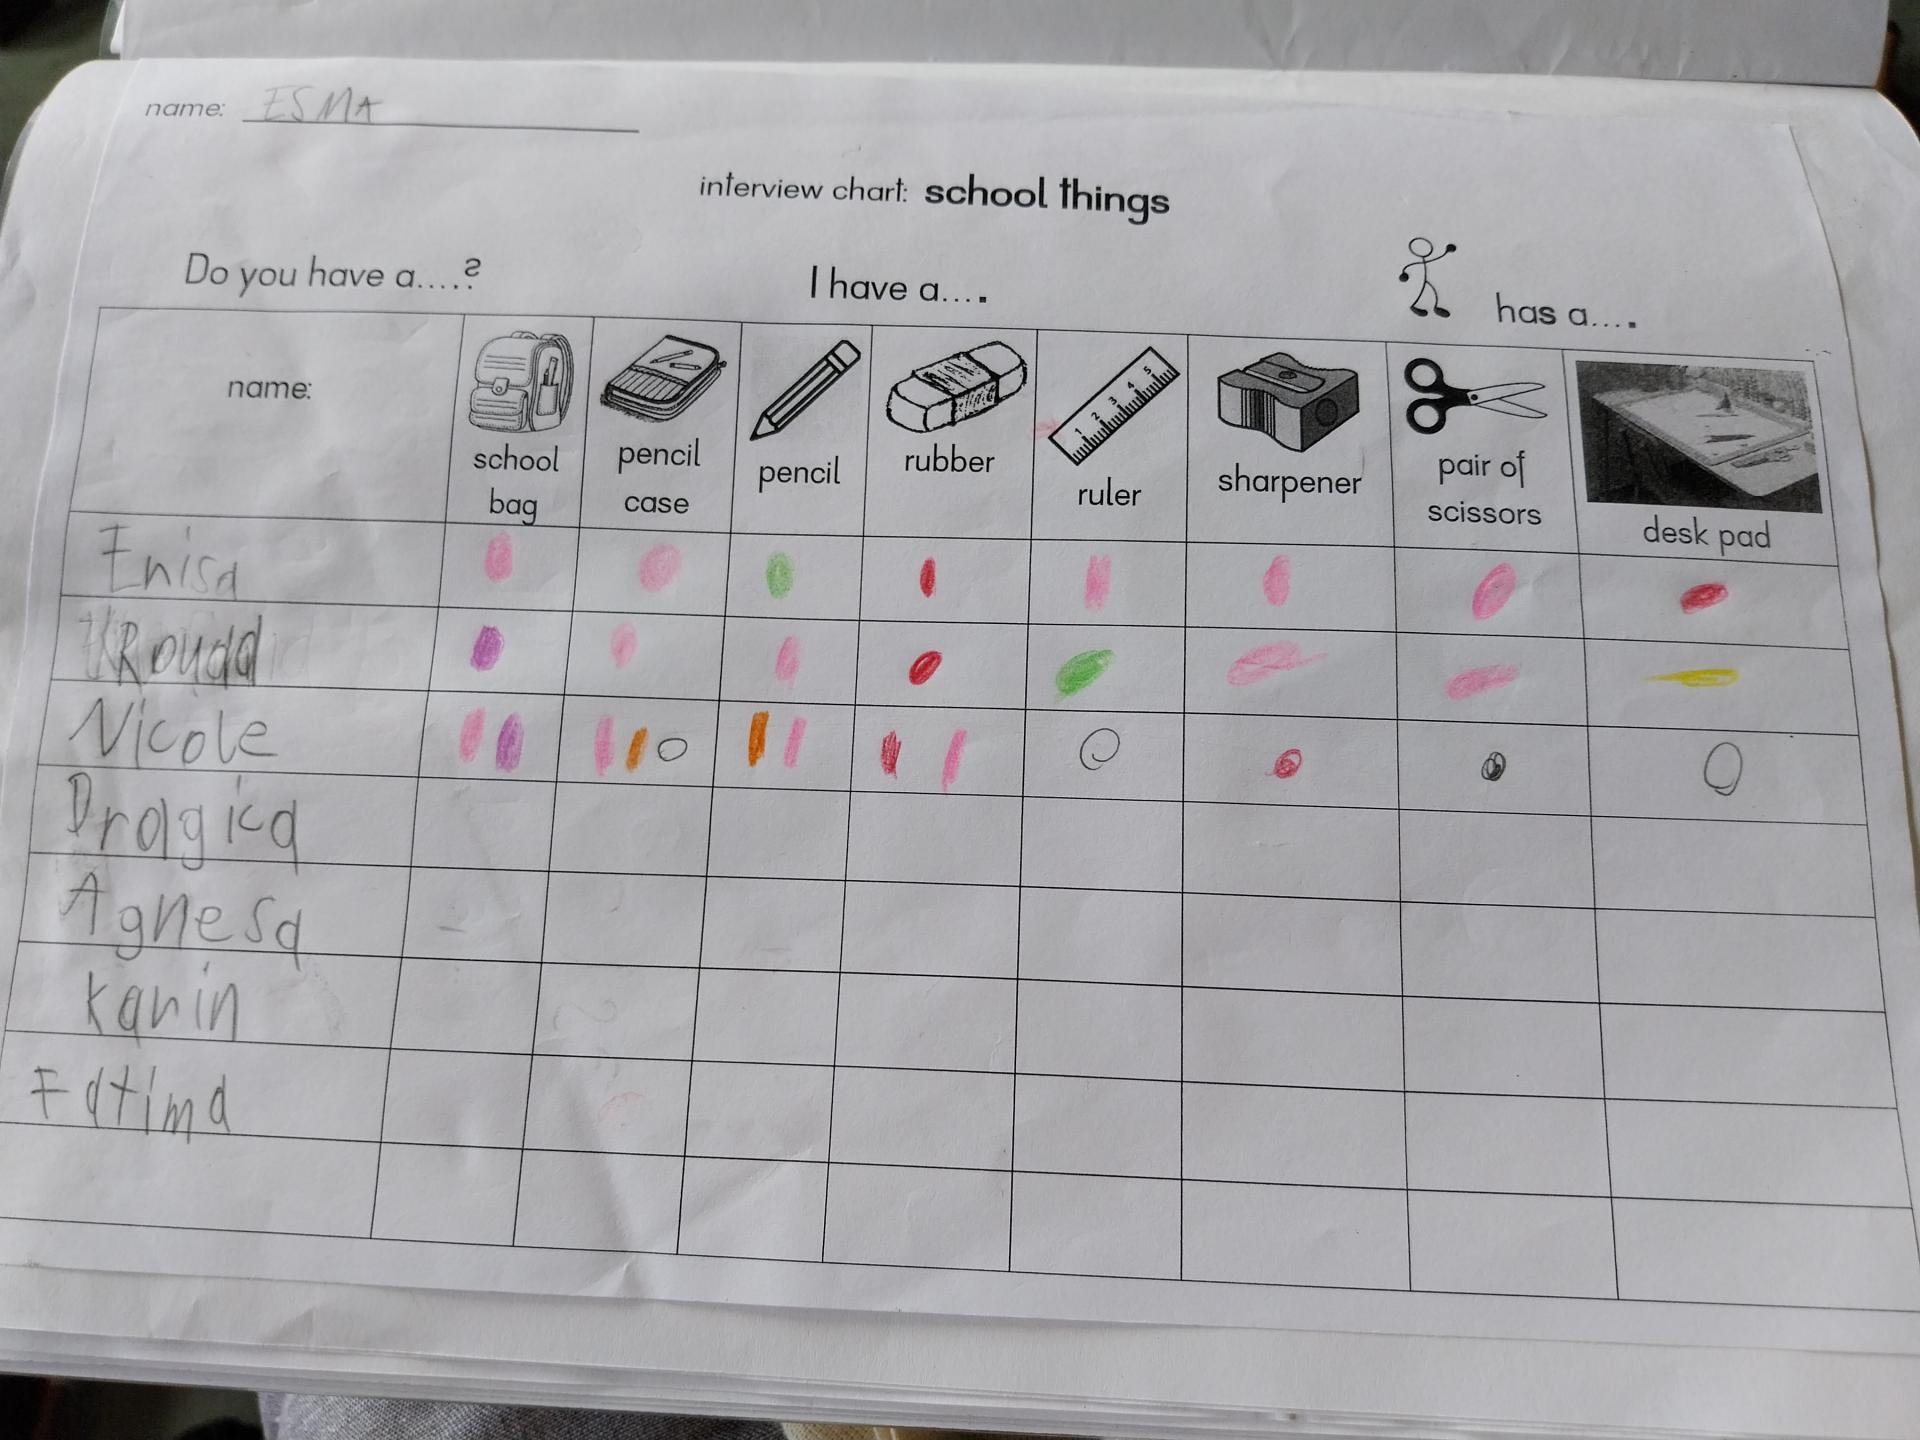 name: ESMA
interview chart: school things
Do you have a.....? I have a.... has a....
name: school bag pencil case pencil rubber ruler sharpener pair of scissors desk pad
Enisa
Nicole
Dragica
Agnesa
Karin
Fatima